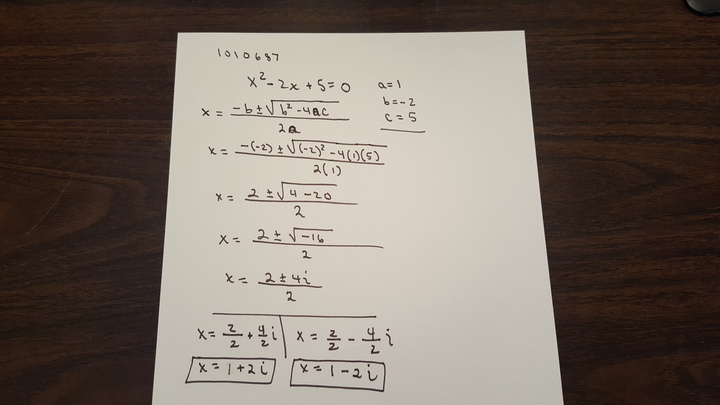 1010687
x² - 2x + 5 = 0
a = 1
b = -2
c = 5
x = (-b ± √(b² - 4ac)) / 2a
x = (-(-2) ± √((-2)² - 4(1)(5))) / 2(1)
x = (2 ± √(4 - 20)) / 2
x = (2 ± √(-16)) / 2
x = (2 ± 4i) / 2
x = 2/2 + 4/2 i | x = 2/2 - 4/2 i
x = 1 + 2i
x = 1 - 2i